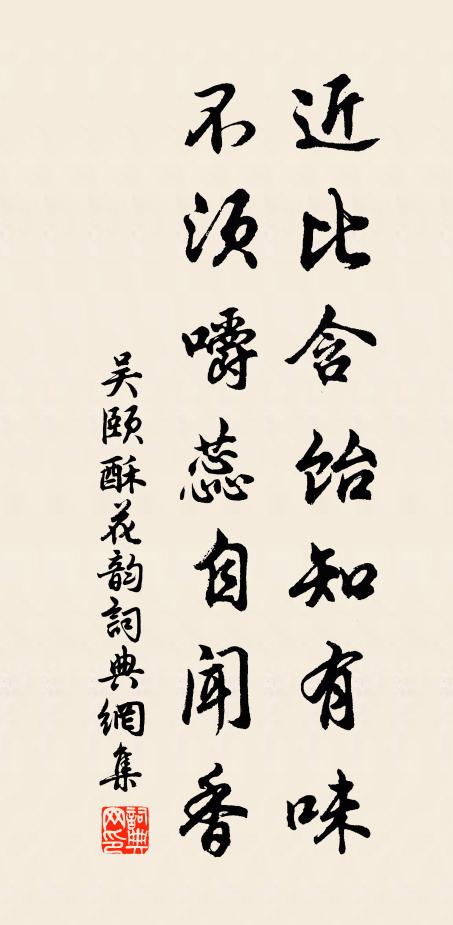 近比含饴知有味
不须嚼蕊自闻香
吴颐酥花韵詞典網集
詞典网印